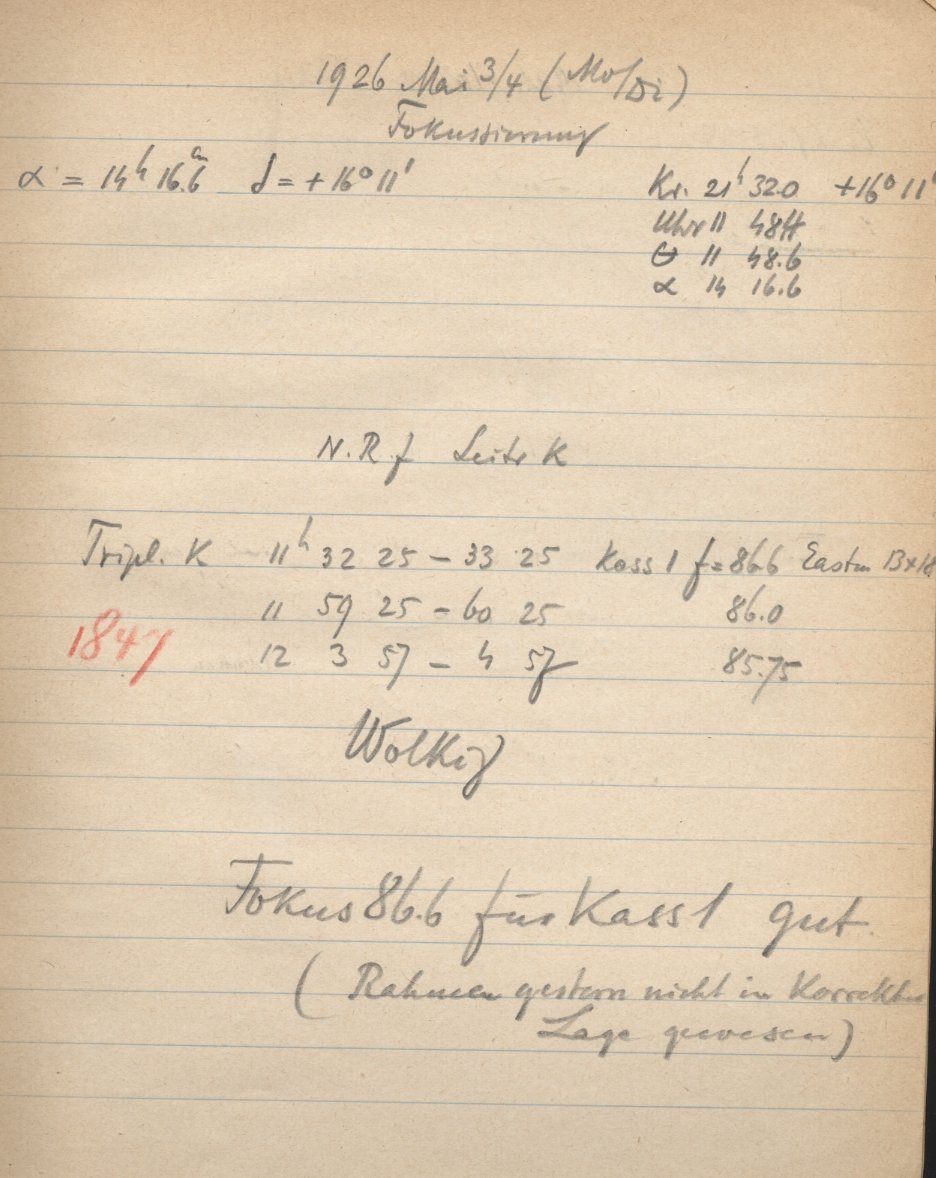 1926 Mai 3/4 (Mo/Di)
Fokussierung
α = 14h 16.6m δ = +16° 11'
Kr. 21h 32.0 +16° 11'
Uhr 11 48
Θ 11 48.6
α 14 16.6
N.R.f Leitr K
Tripl. K 11h 32 25 – 33 25 Kass 1 f=86.6 Eastm 13×18
11 59 25 – 60 25 86.0
1847 12 3 57 – 4 57 85.75
Wolkig
Fokus 86.6 für Kass 1 gut.
(Rahmen gestern nicht in korrekter
Lage gewesen)